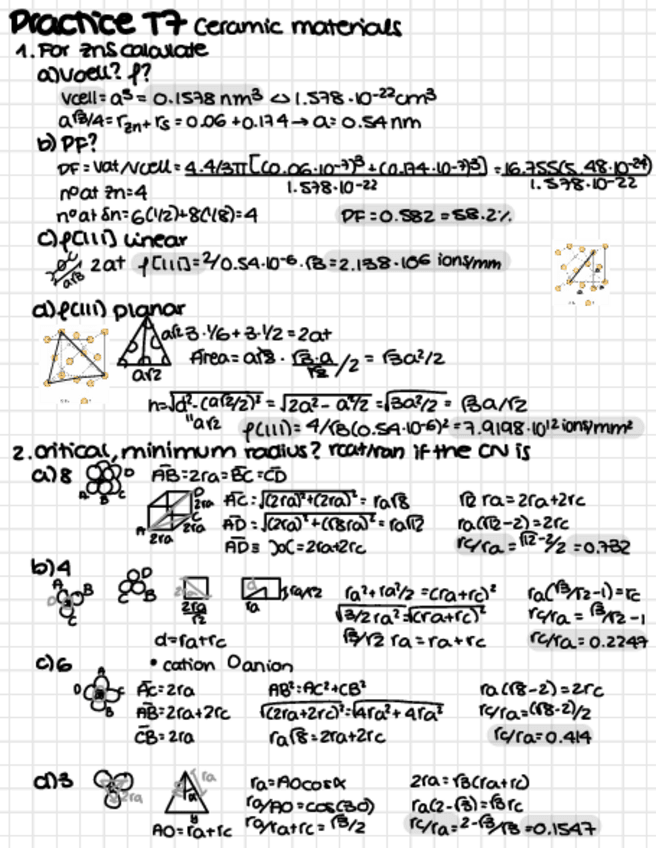 Practice T7 Ceramic materials
1. For ZnS calculate
a) Vcell? ρ?
Vcell = a³ = 0.1578 nm³ ⇔ 1.578·10⁻²² cm³
a√3/4 = rzn + rs = 0.06 + 0.174 → a = 0.54 nm
b) PF?
PF = Vat/Vcell = 4·4/3π[(0.06·10⁻⁷)³ + (0.174·10⁻⁷)³] / 1.578·10⁻²² = 16.755(5.48·10⁻²⁴) / 1.578·10⁻²²
nº at Zn = 4
nº at Sn = 6(1/2) + 8(1/8) = 4 PF = 0.582 = 58.2%
c) ρ[111] linear
a√3 2at ρ[111] = 2/0.54·10⁻⁶·√3 = 2.138·10⁶ ions/mm
d) ρ(111) planar
a√2 3·1/6 + 3·1/2 = 2at
a√2 Area = a√2 · √3·a/√2 /2 = √3a²/2
h = √d²-(a√2/2)² = √2a²-a²/2 = √3a²/2 = √3a/√2
"a√2 ρ(111) = 4/√3(0.54·10⁻⁶)² = 7.9198·10¹² ions/mm²
2. critical, minimum radius? rcat/ran if the CN is
a) 8 A B C D AB = 2ra = BC = CD
A C D 2ra 2ra 2ra AC = √(2ra)²+(2ra)² = ra√8 √12 ra = 2ra + 2rc
AD = √(2ra)²+(√8ra)² = ra√12 ra(√12-2) = 2rc
AD = = 2ra+2rc rc/ra = √12-2/2 = 0.732
b) 4
A B C D D C B 2ra/√2 ra ra√2 ra² + ra²/2 = (ra+rc)² ra(√3/√2-1) = rc
√3/2ra² = √(ra+rc)² rc/ra = √3/√2-1
d = ra+rc √3/√2 ra = ra+rc rc/ra = 0.2247
c) 6 • cation O anion
A B C D AC = 2ra AB² = AC² + CB² ra(√8-2) = 2rc
AB = 2ra+2rc √(2ra+2rc)² = √4ra²+4ra² rc/ra = (√8-2)/2
CB = 2ra ra√8 = 2ra+2rc rc/ra = 0.414
d) 3 2ra ra ra = AO cosα 2ra = √3(ra+rc)
ra/AO = cos(30) ra(2-√3) = √3rc
AO = ra+rc ra/ra+rc = √3/2 rc/ra = 2-√3/√3 = 0.1547